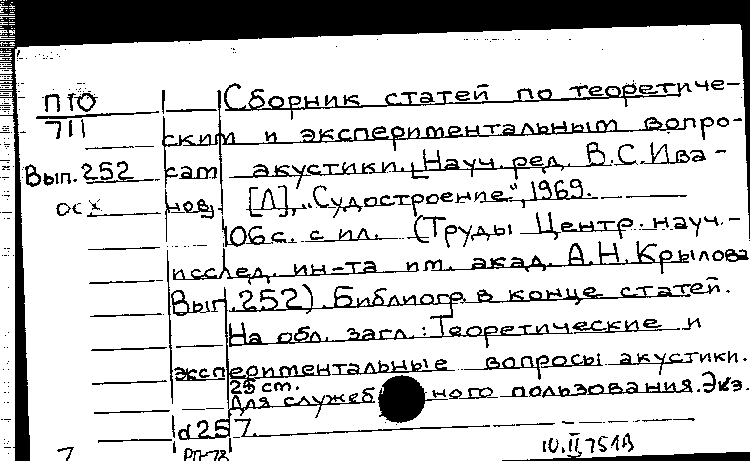 ПЮ Сборник статей по теоретиче-
711 ским и экспериментальным вопро-
Вып. 252 сам акустики. [Науч. ред. В.С. Ива-
осх нов]. [Л], "Судостроение", 1969.
106 с. с ил. (Труды Центр. науч.-
исслед. ин-та им. акад. А.Н. Крылова
Вып. 252). Библиогр. в конце статей.
На обл. загл.: Теоретические и
экспериментальные вопросы акустики.
25 cm.
Для служебного пользования. Экз.
d 257.
7 РП-78 10.II 75